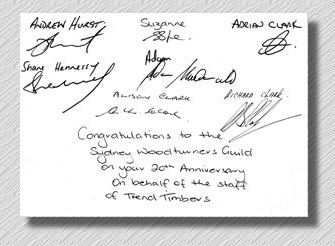 ANDREW HURST Suzanne ADRIAN CLARK
Shane Hennessy Adam
ALISON CLARK RICHARD CLARK.
Congratulations to the
Sydney Woodturners Guild
on your 20th Anniversary
On behalf of the staff
of Trend Timbers